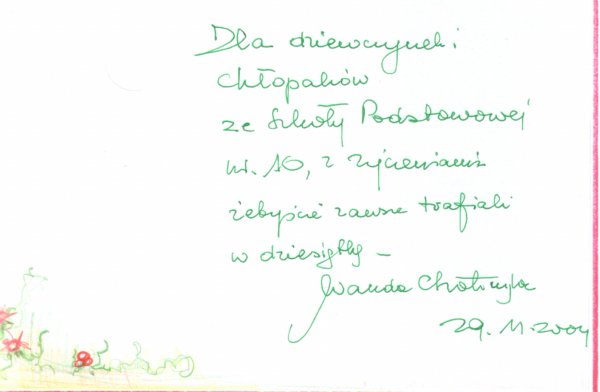 Dla dziewczynek i
chłopaków
ze Szkoły Podstawowej
nr. 10, z życzeniami
żebyście zawsze trafiali
w dziesiątkę –
Wanda Chotomska
29. 11. 2004